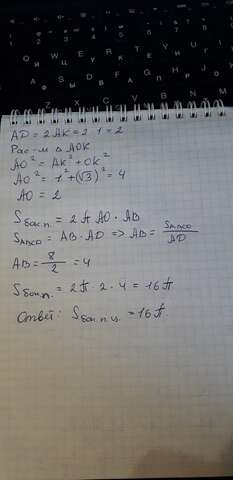 AD = 2 AK = 2 · 1 = 2
Рас-м Δ AOK
AO² = AK² + OK²
AO² = 1² + (√3)² = 4
AO = 2
Sбок п. = 2π AO · AB
SABCD = AB · AD => AB = SABCD / AD
AB = 8/2 = 4
Sбок п. = 2π · 2 · 4 = 16π
Ответ: Sбок п ц. = 16π.